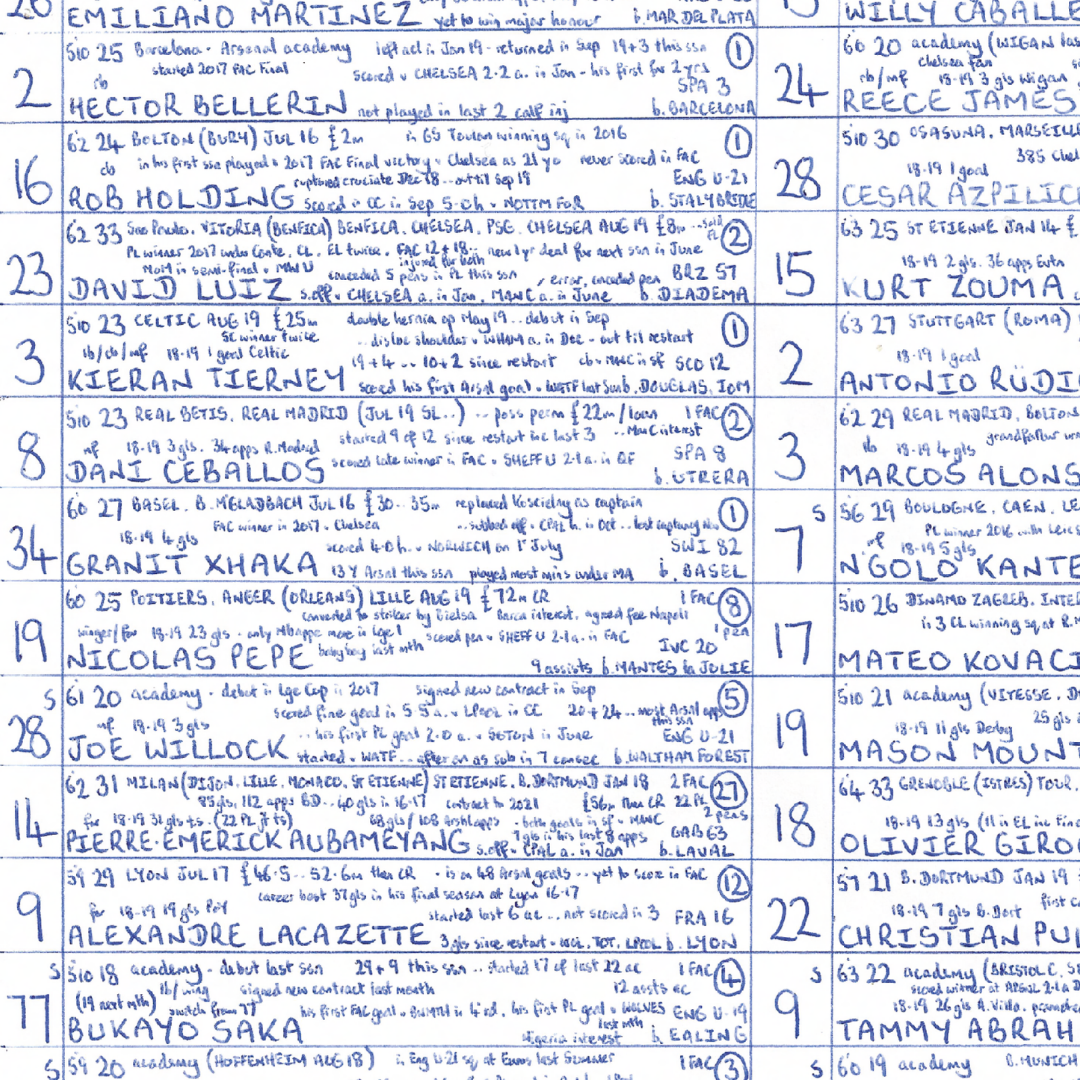 26
EMILIANO MARTINEZ yet to win major honour b. MAR DEL PLATA
2
510 25 Barcelona - Arsenal academy left acl in Jan 19 - returned in Sep 19+3 this ssn 1
started 2017 FAC Final scored v CHELSEA 2-2 a. in Jan - his first for 2 yrs
rb SPA 3
HECTOR BELLERIN not played in last 2 calf inj b. BARCELONA
16
62 24 BOLTON (BURY) JUL 16 £2m in GS Toulon winning sq in 2016 1
in his first ssn played v 2017 FAC Final victory v Chelsea as 21 yo never scored in FAC
cb ruptured cruciate Dec 18 ... out til Sep 19 ENG U-21
ROB HOLDING scored in CC in Sep 5-0 h v NOTTM FOR b. STALYBRIDGE
23
62 33 Sao Paulo, VITORIA (BENFICA) BENFICA, CHELSEA, PSG, CHELSEA AUG 19 £8m 2
PL winner 2017 under Conte, CL, EL twice, FAC 12+18 ... new 1 yr deal for next ssn in June
injured for both
MoM in semi-final v MAN U conceded 5 pens in PL this ssn error, conceded pen BRZ 57
DAVID LUIZ s.off v CHELSEA a. in Jan, MANC a. in June b. DIADEMA
3
510 23 CELTIC AUG 19 £25m double hernia op May 19 .. debut in Sep 1
SC winner twice .. disloc shoulder v WHAM a. in Dec - out til restart
lb/cb/mf 18-19 1 goal Celtic 19+4 ... 10+2 since restart cb v MANC in sf SCO 12
KIERAN TIERNEY scored his first Arsnl goal v WATF last Sun b. DOUGLAS, IOM
8
510 23 REAL BETIS, REAL MADRID (JUL 19 SL..) .. poss perm £22m/loan 1 FAC 2
started 9 of 12 since restart inc last 3 .. ManC interest
mf 18-19 3 gls, 34 apps R.Madrid SPA 8
DANI CEBALLOS scored late winner in FAC v SHEFF U 2-1 a. in QF b. UTRERA
34
60 27 BASEL, B. M'GLADBACH JUL 16 £30-35m replaced Koscielny as captain 1
FAC winner in 2017 v Chelsea ... subbed off v CPAL h. in Oct .. lost captaincy Nov
18-19 4 gls scored 4-0 h. v NORWICH on 1st July SWI 82
GRANIT XHAKA 13 Y Arsnl this ssn played most mins under MA b. BASEL
19
60 25 POITIERS, ANGER (ORLEANS) LILLE AUG 19 £72m CR 1 FAC 8
converted to striker by Bielsa Barca interest, agreed fee Napoli 1 pen
winger/for 18-19 23 gls - only Mbappe more in Lge 1 scored pen v SHEFF U 2-1 a. in FAC IVC 20
NICOLAS PEPE baby boy last mth 9 assists b. MANTES la JOLIE
S 28
61 20 academy - debut in Lge Cup in 2017 signed new contract in Sep 5
scored fine goal in 5-5 a. v LPOOL in CC 20+24 ... most Arsnl apps this ssn
mf 18-19 3 gls .. his first PL goal 2-0 a. v SOTON in June ENG U-21
JOE WILLOCK started v WATF ... after on as sub in 7 consec b. WALTHAM FOREST
14
62 31 MILAN (DIJON, LILLE, MONACO, ST ETIENNE) ST ETIENNE, B.DORTMUND JAN 18 2 FAC 27
85 gls, 112 apps BD .. 40 gls in 16-17 contract to 2021 £56m then CR 22 PL
2 pens
for 18-19 31 gls ts. (22 PL jt ts) 68 gls/108 Arsnl apps - both goals in sf v MANC
7 gls in his last 8 apps GAB 63
PIERRE-EMERICK AUBAMEYANG s.off v CPAL a. in Jan b. LAVAL
9
59 29 LYON JUL 17 £46.5 .. 52.6m then CR - is on 48 Arsnl goals .. yet to score in FAC 12
career best 37 gls in his final season at Lyon 16-17
for 18-19 19 gls PoY started last 6 ec ... not scored in 3 FRA 16
ALEXANDRE LACAZETTE 3 gls since restart - WOL, TOT, LPOOL b. LYON
S 77
510 18 academy - debut last ssn 29+9 this ssn .. started 17 of last 22 ac 1 FAC 4
lb/wing signed new contract last month 12 assts ec
(19 next mth) switch from 77 his first FAC goal v BMTH in 4 rd, his first PL goal v WOLVES last mth ENG U-19
BUKAYO SAKA Nigeria interest b. EALING
S 59 20 academy (HOFFENHEIM AUG 18) in Eng U21 sq at Euros last Summer 1 FAC 3
WILLY CABALLE
24
60 20 academy (WIGAN las
chelsea fan
rb/mf 18-19 3 gls Wigan
REECE JAMES
28
510 30 OSASUNA, MARSEILLE
385 Chel
18-19 1 goal
CESAR AZPILIC
15
63 25 ST ETIENNE JAN 14 £
18-19 2 gls, 36 apps Evtn
KURT ZOUMA
2
63 27 STUTTGART (ROMA)
18-19 1 goal
ANTONIO RÜDI
3
62 29 REAL MADRID, BOLTON
grandfather
lb 18-19 4 gls
MARCOS ALONS
S 7
56 29 BOULOGNE, CAEN, LE
PL winner 2016 with Leics
mf 18-19 5 gls
N'GOLO KANTE
17
510 26 DINAMO ZAGREB, INTE
in 3 CL winning sq at R.M
MATEO KOVACI
19
510 21 academy (VITESSE, D
25 gls
18-19 11 gls Derby
MASON MOUNT
18
64 33 GRENOBLE (ISTRES) TOUR,
18-19 13 gls (11 in EL inc Fin
OLIVIER GIRO
22
57 21 B.DORTMUND JAN 19
first c
18-19 7 gls B.Dort
CHRISTIAN PU
S 9
63 22 academy (BRISTOL C, S
scored winner at ARSNL 2-1 a
18-19 26 gls A.Villa, promoted
TAMMY ABRAH
S 60 19 academy B.MUNICH